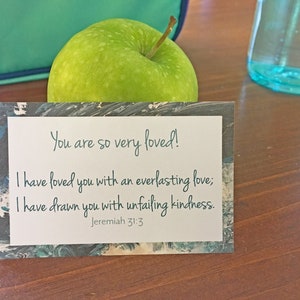 You are so very loved!
I have loved you with an everlasting love;
I have drawn you with unfailing kindness.
Jeremiah 31:3